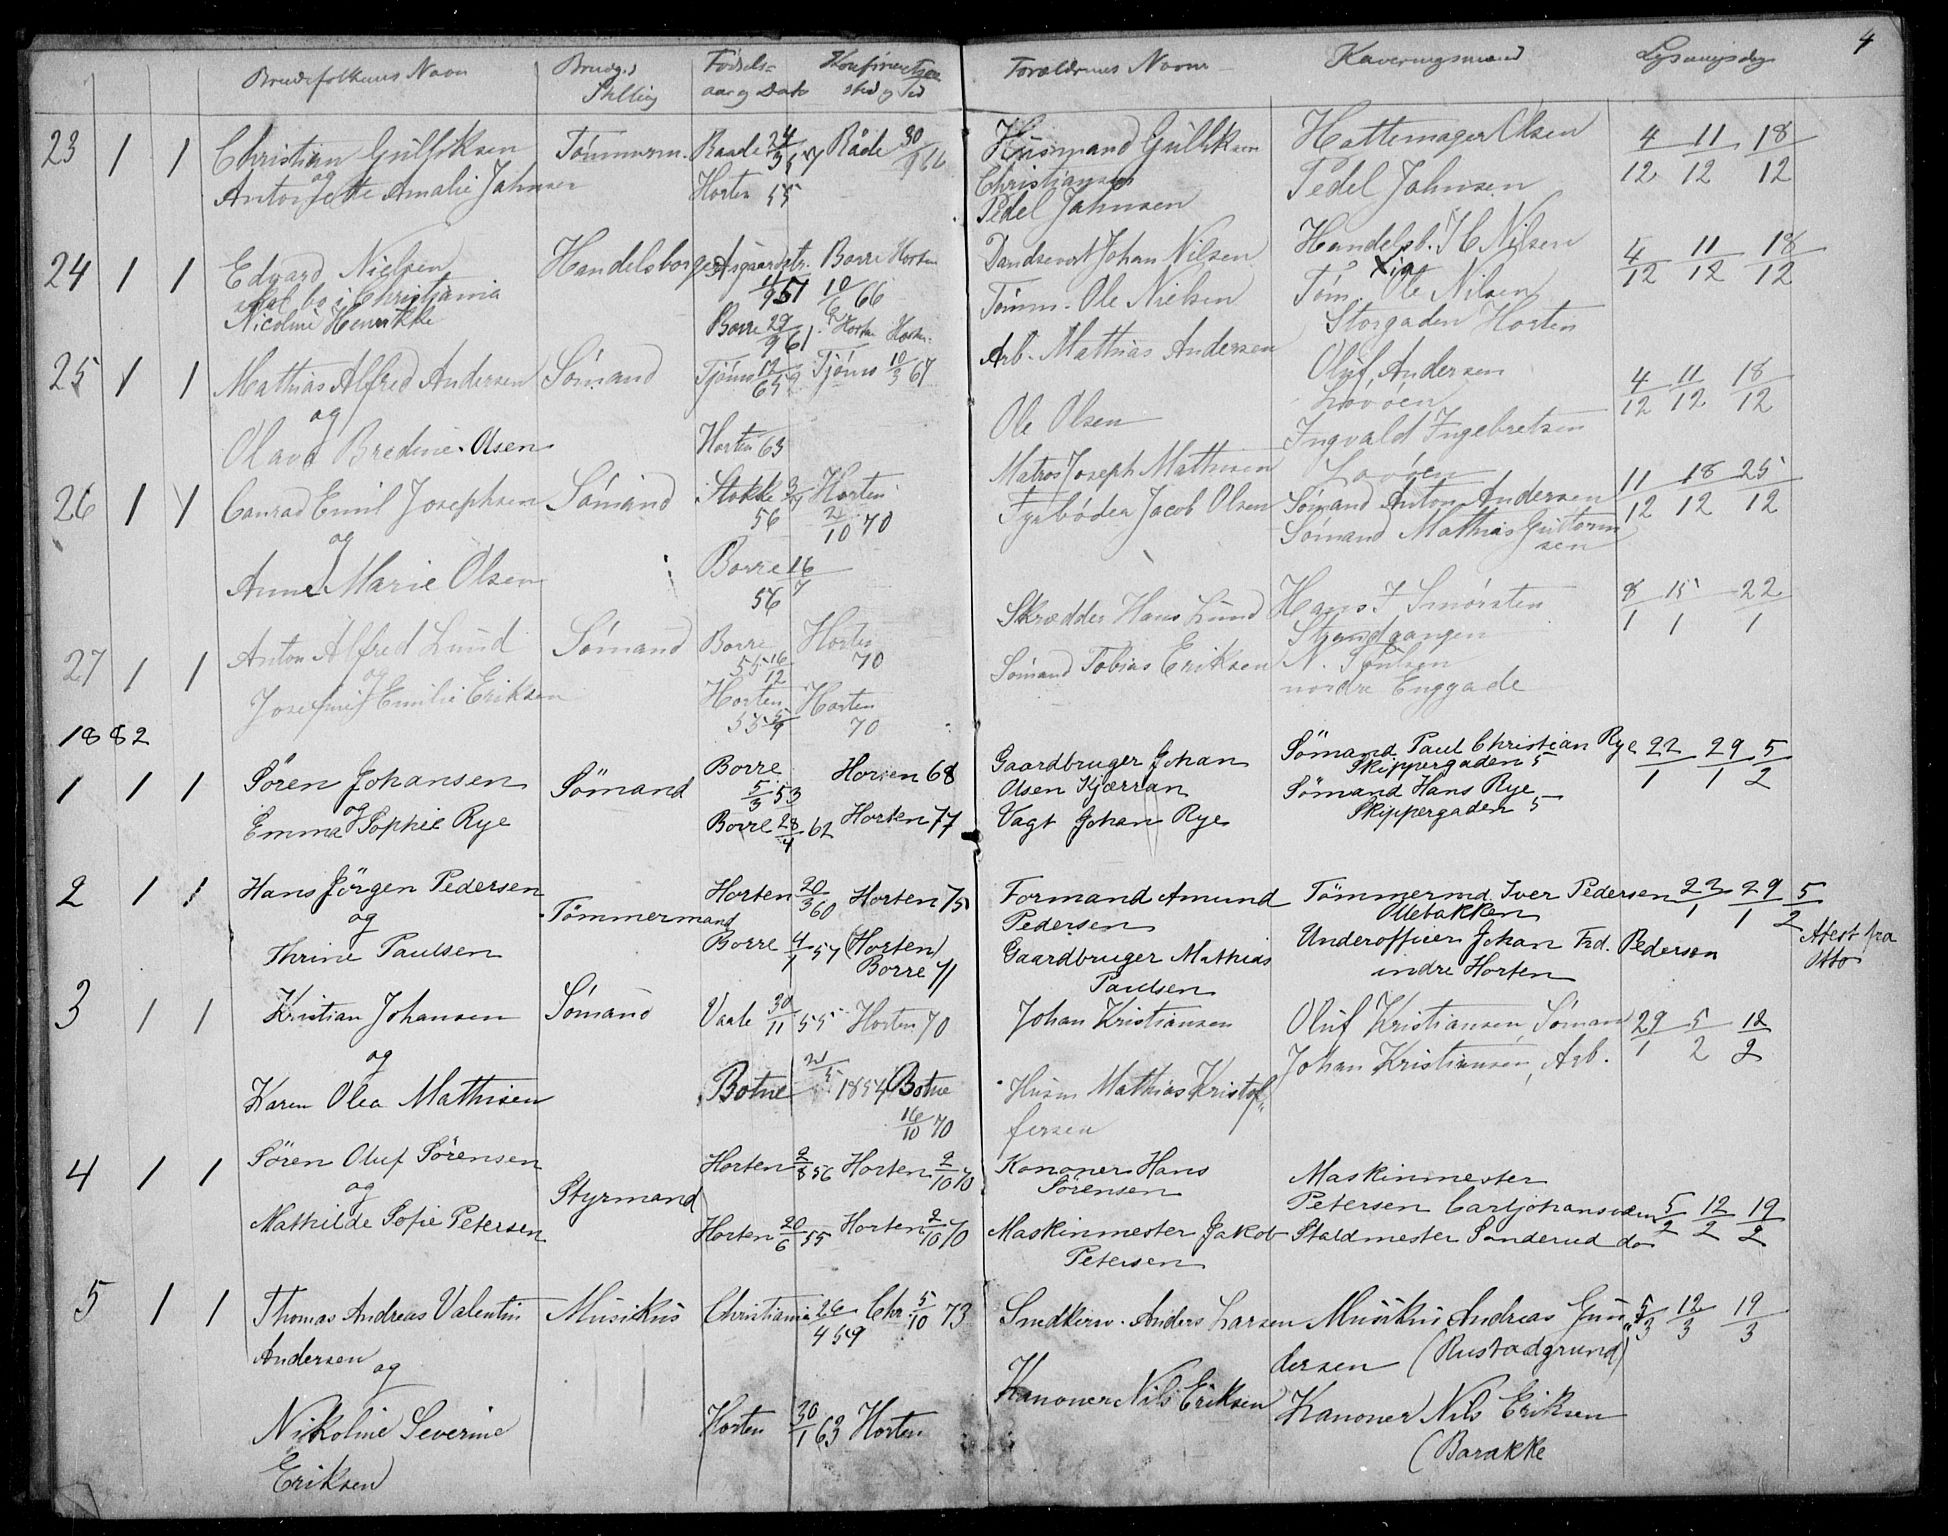 4
Brudefolkenes Navn Brudg.s Stilling Fødsels- aar og Dato Konfirmations sted og Tid Forældrenes Navne Kaveringsmænd Lysningsdag
23 1 1 Christian Gulliksen Tømmerm. Raade 24/3 57 Råde 30/9 Husmand Gulliksen Hattemager Olsen 4/12 11/12 18/12
og Christiansen
Antonjette Amalie Jahnsen Horten 55 Pedel Jahnsen Pedel Jahnsen
24 1 1 Edvard Nielsen Handelsborger Asgaardstr. 11/9 51 Borre Horten 10/6 66 Johan Nilsen Handelsb. H Nilsen 4/12 11/12 18/12
skal bo i Christiania Tømm. Ole Nielsen Tøm. Ole Nilsen
Nicoline Henrikke Borre 29/9 61 Horten Storgaden Horten
25 1 1 Mathias Alfred Andersen Sømand Tjømø Tjømø 10/3 67 Arb. Mathias Andersen Oluf Andersen 4/12 11/12 18/12
og Løvøen
Olava Bredine Olsen Horten 63 Ole Olsen Ingvald Ingebretsen
Løvøen
26 1 1 Conrad Emil Josephsen Sømand Stokke 56 Horten 2/10 70 Matros Joseph Mathisen Sømand Anton Andersen 11/12 18/12 25/12
og Fyrbøder Jacob Olsen Sømand Mathias Guttorm
sen
Anne Marie Olsen Borre 16/7 56
27 1 1 Anton Alfred Lund Sømand Borre 55 16/12 Horten 70 Skrædder Hans Lund Hans J Smørsten 8/1 15/1 22/1
og Strandgangen
Josefine Emilie Eriksen Horten 55 5/9 Horten 70 Sømand Tobias Eriksen N. Poulsen
nordre Enggade
1882
1 1 1 Søren Johansen Sømand Borre 5/3 53 Horten 68 Gaardbruger Johan Sømand Paul Christian Rye 22/1 29/1 5/2
og Olsen Kjærran Skippergaden 5
Emma Sophie Rye Borre 28/4 62 Horten 77 Vagt Johan Rye Sømand Hans Rye
Skippergaden 5
2 1 1 Hans Jörgen Pedersen Tömmermand Horten 20/3 60 Horten 75 Formand Amund Tömmermd. Iver Pedersen 22/1 29/1 5/2
og Pedersen Ollebakken
Thrine Paulsen Borre 4/1 57 (Horten) Borre 71 Gaardbruger Mathias Underofficer Johan Frd. Pedersen Atest fra
Paulsen indre Horten Otto
3 1 1 Kristian Johansen Sømand Vaale 30/11 55 Horten 70 Johan Kristiansen Oluf Kristiansen, Sømand 29/1 5/2 12/2
og Johan Kristiansen, Arb.
Karen Olea Mathisen Botne 1854 Botne 16/10 70 Husm Mathias Kristof-
fersen
4 1 1 Søren Oluf Sørensen Styrmand Horten 2/8 56 Horten 2/10 70 Kanoner Hans Maskinmester
og Sørensen Petersen Carljohansværn 5/2 12/2 19/2
Mathilde Sofie Petersen Horten 20/6 55 Horten 2/10 70 Maskinmester Jakob Staldmester Sønderud do
Petersen
5 1 1 Thomas Andreas Valentin Musikus Christiania 26/4 59 Chr. 5/10 73 Snedkersv. Anders Larsen Musikus Andreas Gun- 5/3 12/3 19/3
Andersen dersen (Rustadgrund)
og
Nikoline Severine Horten 30/1 63 Horten Kanoner Nils Eriksen Kanoner Nils Eriksen
Eriksen (Barakke